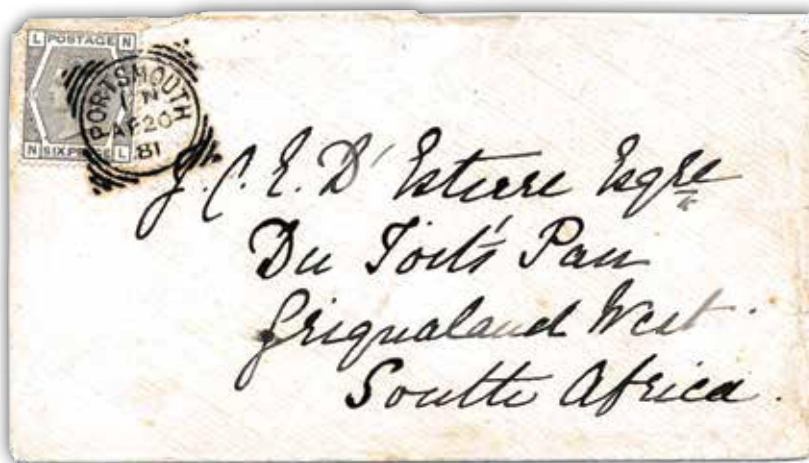 L POSTAGE N
N SIX PENCE L
PORTSMOUTH
1 N
AP 20
81
J. C. E. D'Esterre Esqre
Du Toit's Pan
Griqualand West.
South Africa.